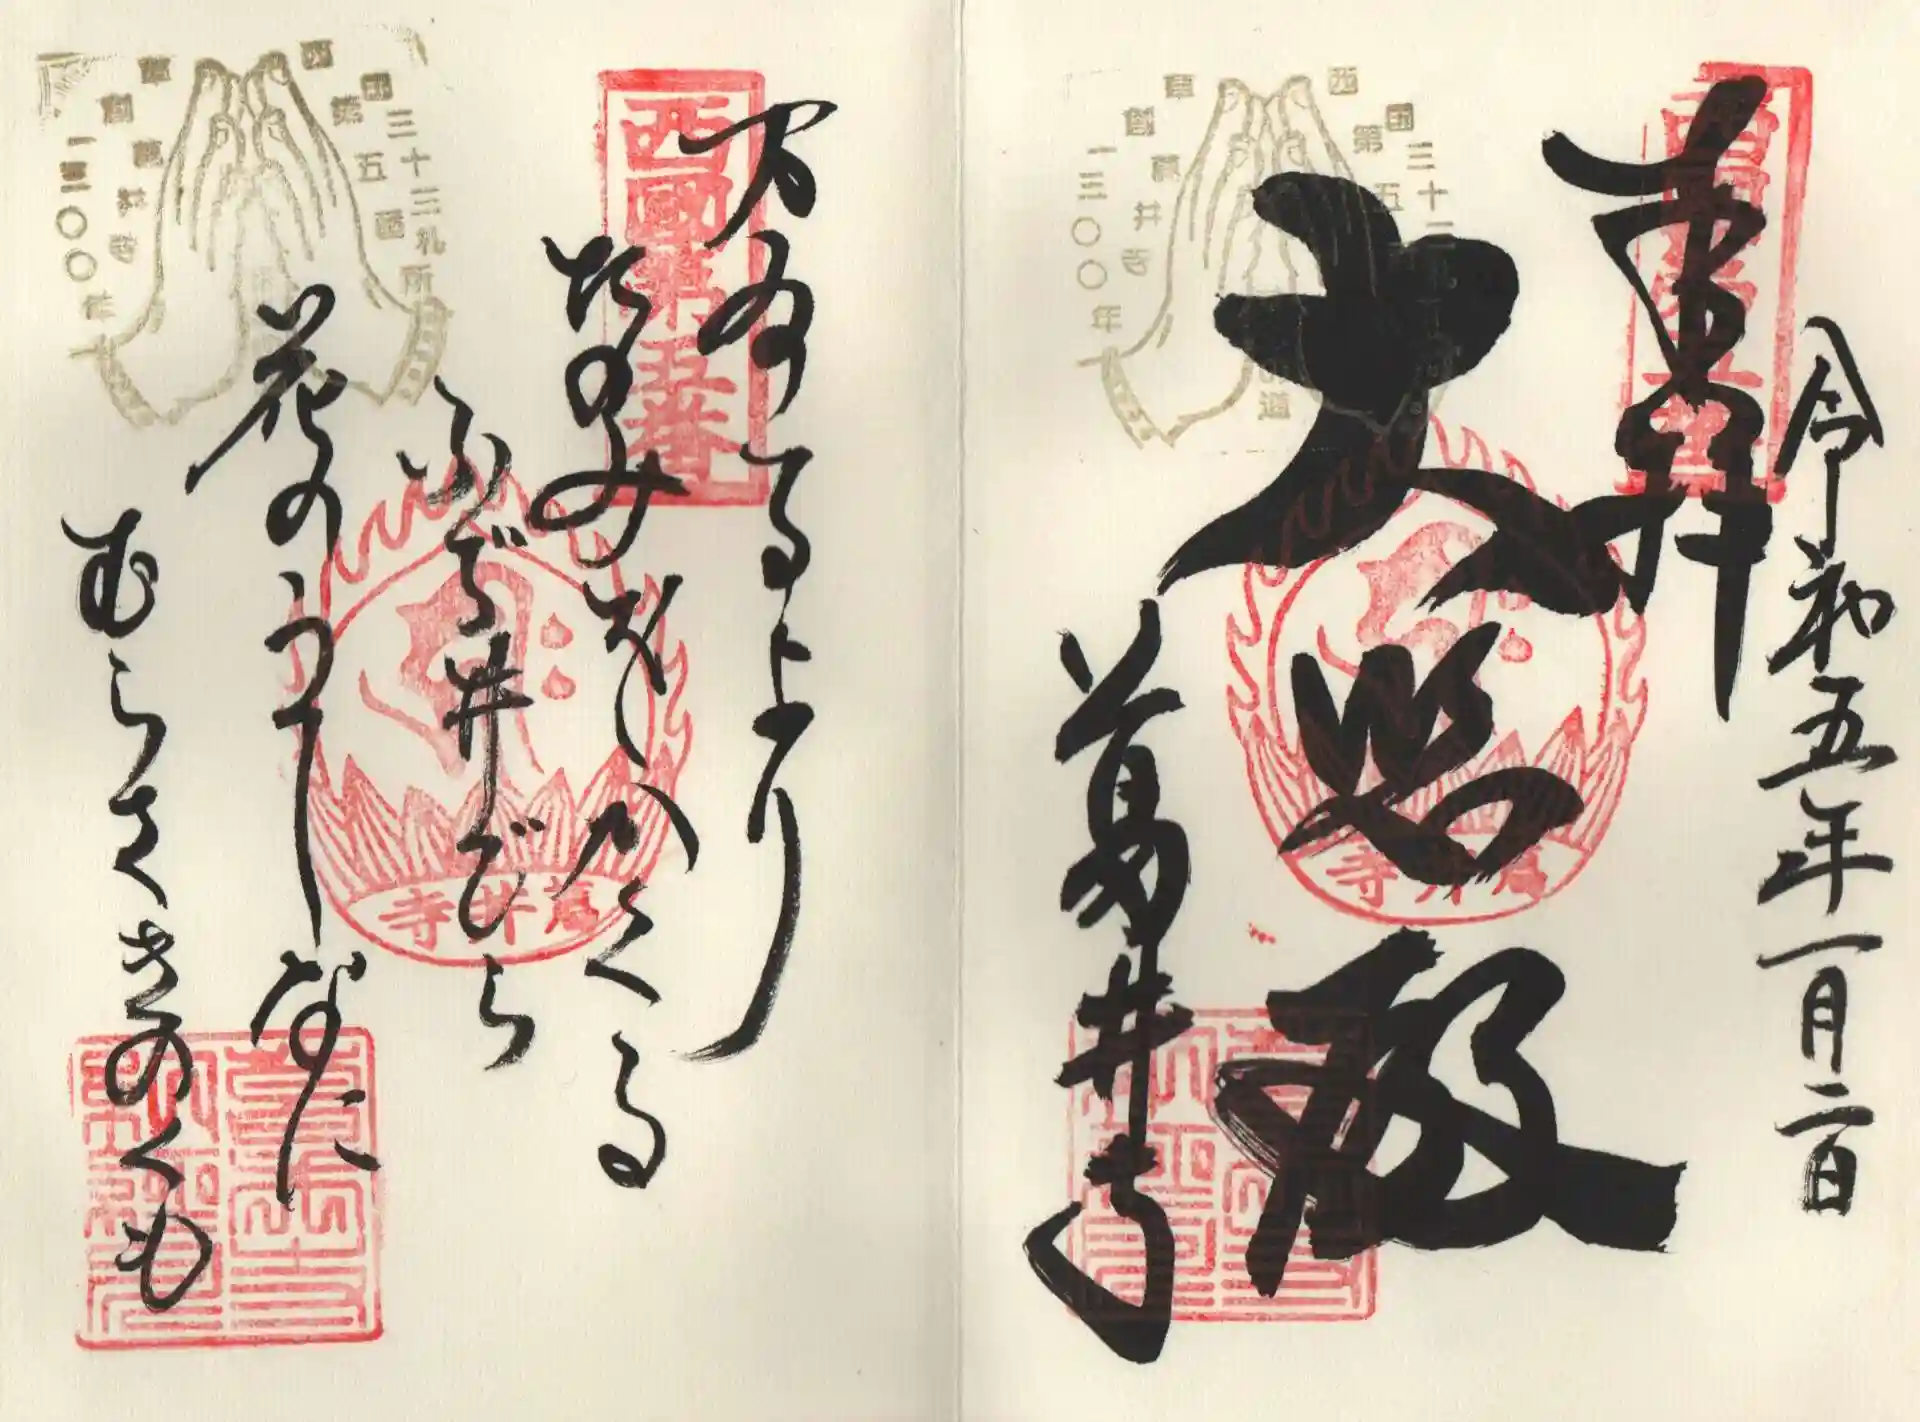 奉拝
令和五年一月二日
大悲殿
葛井寺
西国三十三札所
第五番
草創
葛井寺
一三〇〇年
道
葛井寺
西國第五番
万有るより
たのみをかくる
ふぢ井でら
花のうてなに
むらさきのくも
西国三十三札所
第五番
草創
葛井寺
一三〇〇年
西國第五番
葛井寺